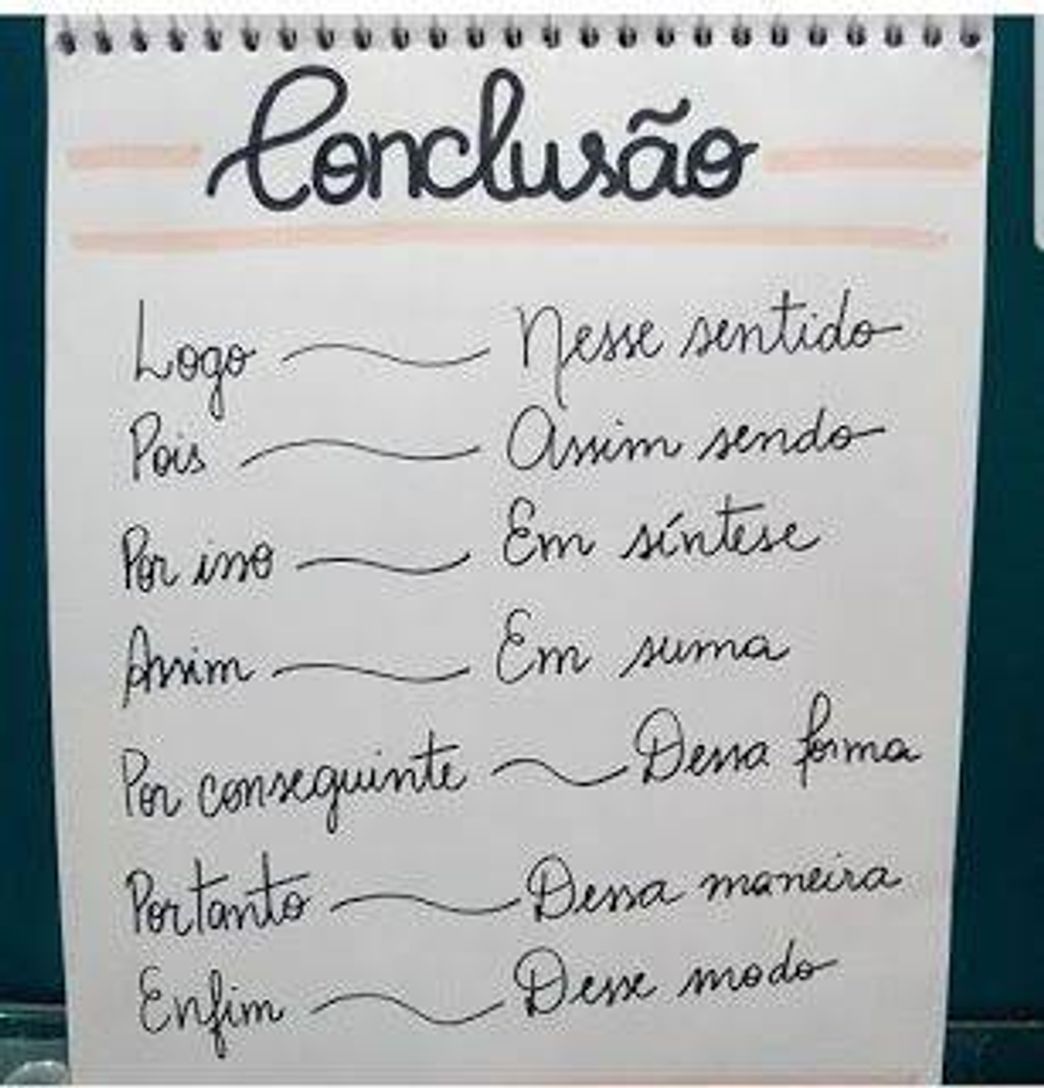 Conclusão
Logo Nesse sentido
Pois Assim sendo
Por isso Em síntese
Assim Em suma
Por conseguinte Dessa forma
Portanto Dessa maneira
Enfim Desse modo